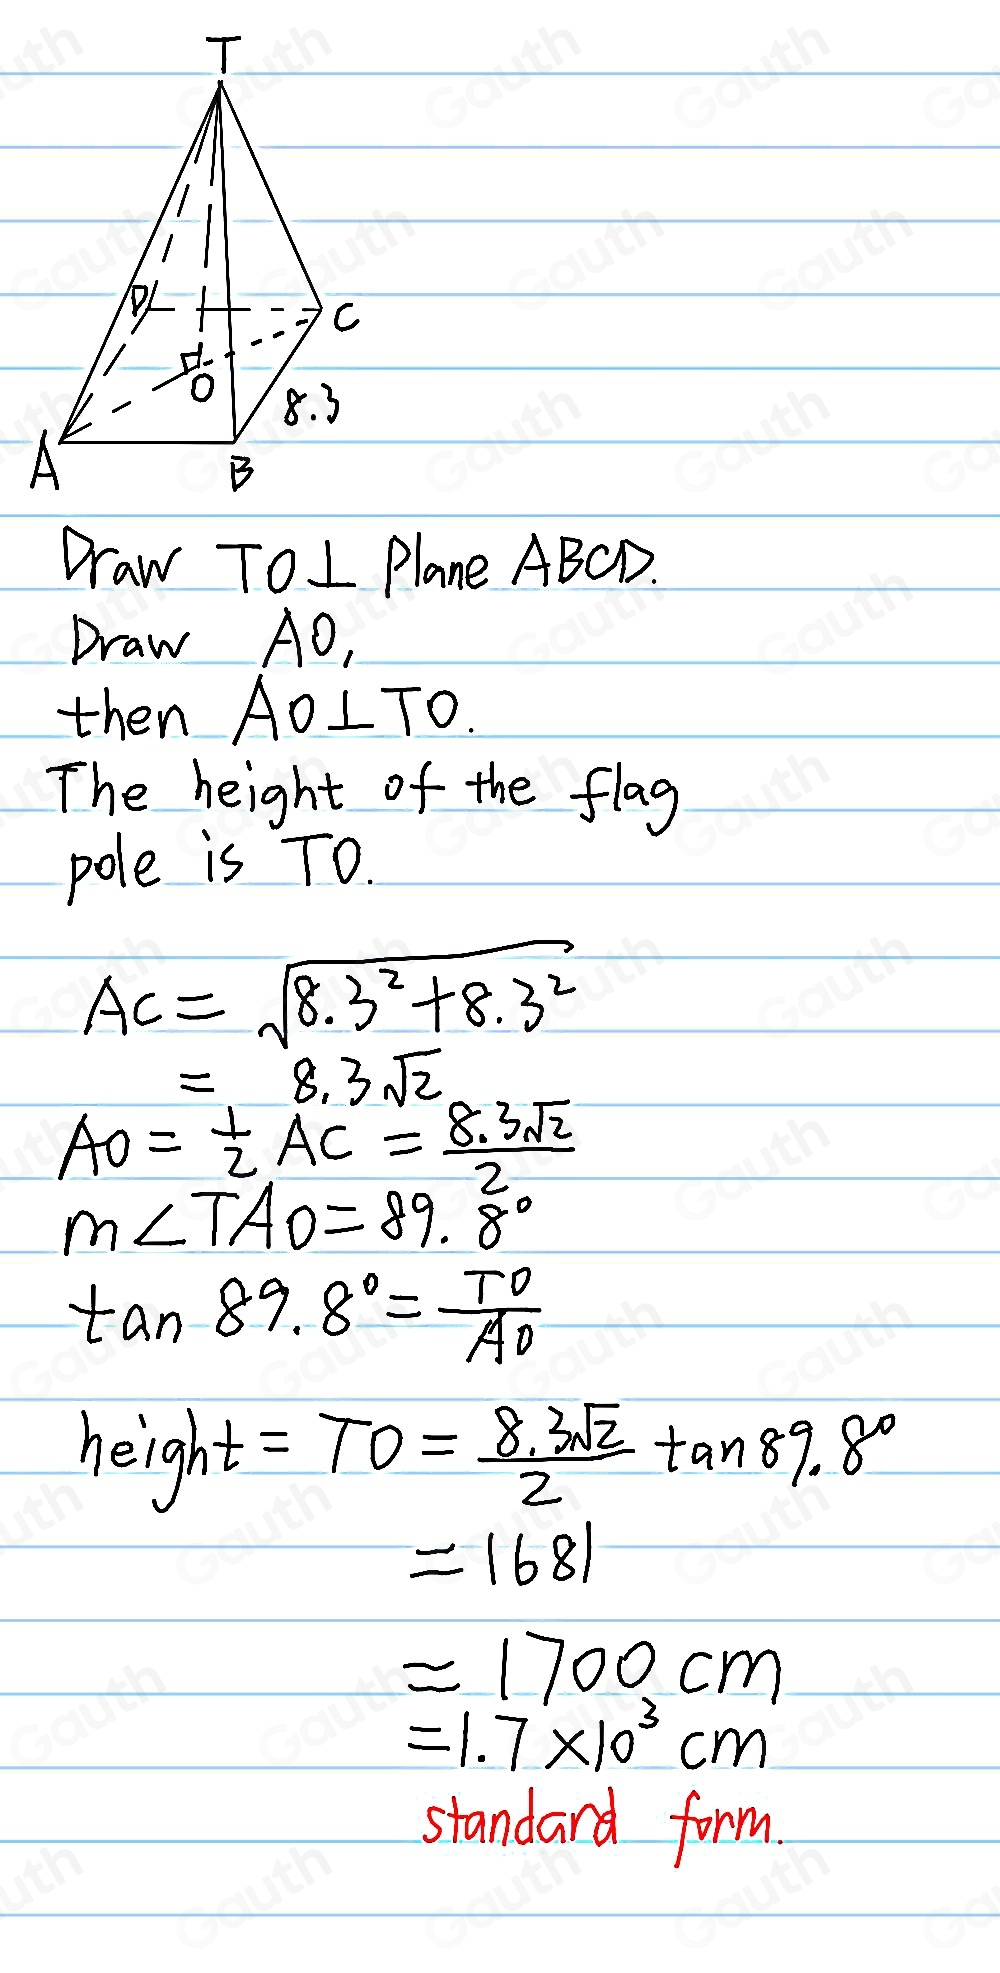 T
D
C
O
8.3
A
B
Draw TO⊥ Plane ABCD.
Draw AO,
then AO⊥TO.
The height of the flag
pole is TO.
AC = √(8.3²+8.3²)
= 8.3√2
AO = 1/2 AC = 8.3√2/2
m∠TAO = 89.8°
tan 89.8° = TO/AO
height = TO = 8.3√2/2 tan 89.8°
= 1681
≈ 1700 cm
= 1.7 × 10³ cm
standard form.
Gauth